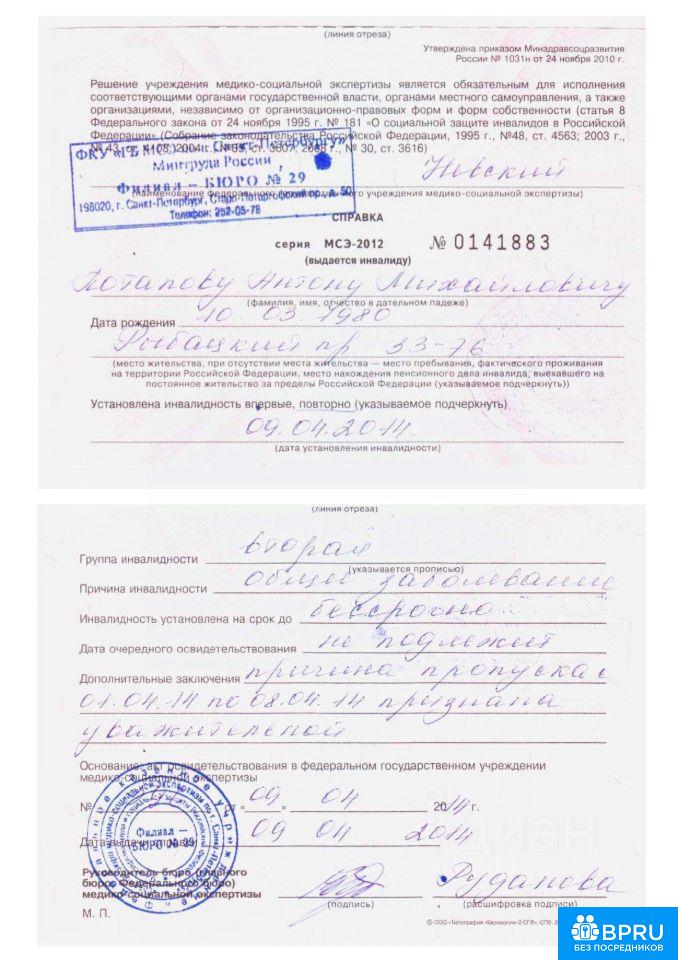 (линия отреза)
Утверждена приказом Минздравсоцразвития
России № 1031н от 24 ноября 2010 г.
Решение учреждения медико-социальной экспертизы является обязательным для исполнения
соответствующими органами государственной власти, органами местного самоуправления, а также
организациями, независимо от организационно-правовых форм и форм собственности (статья 8
Федерального закона от 24 ноября 1995 г. № 181 «О социальной защите инвалидов в Российской
Федерации» (Собрание законодательства Российской Федерации, 1995 г., №48, ст. 4563; 2003 г.,
№ 43, ст. 4108; 2004 г., ст. 3607; № 30, ст. 3616)
ФКУ «ГБ МСЭ по г. Санкт-Петербургу»
Минтруда России
Филиал – БЮРО № 29
198020, г. Санкт-Петербург, Старо-Петергофский пр., д. 50
Телефон: 252-05-78
Невский
(наименование федерального государственного учреждения медико-социальной экспертизы)
СПРАВКА
серия МСЭ-2012 № 0141883
(выдается инвалиду)
Потапову Антону Михайловичу
(фамилия, имя, отчество в дательном падеже)
Дата рождения 10 03 1980
Рыбацкий пр 33-76
(место жительства, при отсутствии места жительства — место пребывания, фактического проживания
на территории Российской Федерации, место нахождения пенсионного дела инвалида, выехавшего на
постоянное жительство за пределы Российской Федерации (указываемое подчеркнуть))
Установлена инвалидность впервые, повторно (указываемое подчеркнуть)
09.04.2014.
(дата установления инвалидности)
(линия отреза)
Группа инвалидности вторая
(указывается прописью)
Причина инвалидности общее заболевание
Инвалидность установлена на срок до бессрочно
Дата очередного освидетельствования не подлежит
Дополнительные заключения причина пропуска с
01.04.14 по 08.04.14 признана
уважительной
Основание: акт освидетельствования в федеральном государственном учреждении
медико-социальной экспертизы
№ от «09» 04 2014 г.
Дата выдачи справки 09 04 2014
Филиал –
БЮРО № 29
Руководитель бюро (главного
бюро, Федерального бюро)
медико-социальной экспертизы Руданова
(подпись) (расшифровка подписи)
М. П.
© ООО «Типография «Еврокопия-2 СПб». СПб.
BPRU
БЕЗ ПОСРЕДНИКОВ